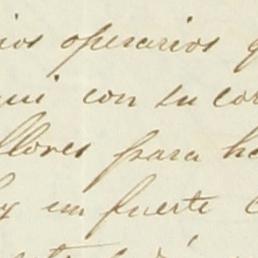 ios operarios q
ui con su cor
llores para ha
y un fuerte c